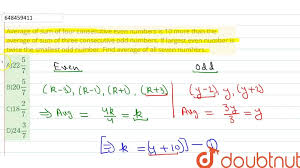 648459411
Average of sum of four consecutive even numbers is 10 more than the
average of sum of three consecutive odd numbers. If largest even number is
twice the smallest odd number. Find average of all seven numbers.
A)22 5/7
B)20 5/7
C)18 2/7
D)24 3/7
Even
(k-3), (k-1), (k+1), (k+3)
⇒ Avg = 4k/4 = k
Odd
(y-2), y, (y+2)
⇒ Avg = 3y/3 = y
[⇒ k = (y+10)] — ①
doubtnut